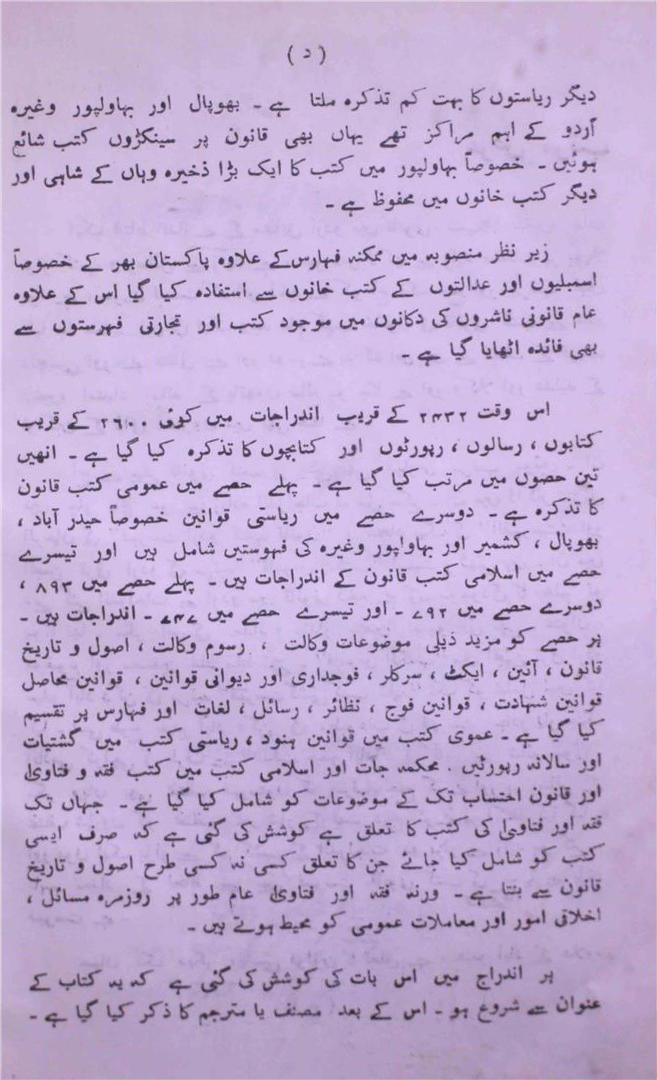 ( د )
دیگر ریاستوں کا بہت کم تذکرہ ملتا ہے ۔ بھوپال اور بہاولپور وغیرہ
اُردو کے اہم مراکز تھے یہاں بھی قانون پر سینکڑوں کتب شائع
ہوئیں ۔ خصوصاً بہاولپور میں کتب کا ایک بڑا ذخیرہ وہاں کے شاہی اور
دیگر کتب خانوں میں محفوظ ہے ۔
زیر نظر منصوبہ میں ممکنہ فہارس کے علاوہ پاکستان بھر کے خصوصاً
اسمبلیوں اور عدالتوں کے کتب خانوں سے استفادہ کیا گیا اس کے علاوہ
عام قانونی ناشروں کی دکانوں میں موجود کتب اور تجارتی فہرستوں سے
بھی فائدہ اٹھایا گیا ہے ۔
اس وقت ۲۴۳۲ کے قریب اندراجات میں کوئی ۲۶۰۰ کے قریب
کتابوں ، رسالوں ، رپورٹوں اور کتابچوں کا تذکرہ کیا گیا ہے ۔ انھیں
تین حصوں میں مرتب کیا گیا ہے ۔ پہلے حصے میں عمومی کتب قانون
کا تذکرہ ہے ۔ دوسرے حصے میں ریاستی قوانین خصوصاً حیدر آباد ،
بھوپال ، کشمیر اور بہاولپور وغیرہ کی فہوستیں شامل ہیں اور تیسرے
حصے میں اسلامی کتب قانون کے اندراجات ہیں ۔ پہلے حصے میں ۸۹۳ ،
دوسرے حصے میں ۷۹۲ ۔ اور تیسرے حصے میں ۷۴۷ ۔ اندراجات ہیں ۔
ہر حصے کو مزید ذیلی موضوعات وکالت ، رسوم وکالت ، اصول و تاریخ
قانون ، آئین ، ایکٹ ، سرکلر ، فوجداری اور دیوانی قوانین ، قوانین محاصل
قوانین شہادت ، قوانین فوج ، نظائر ، رسائل ، لغات اور فہارس پر تقسیم
کیا گیا ہے ۔ عموی کتب میں قوانین ہنود ، ریاستی کتب میں گشتیات
اور سالانہ رپورٹیں محکمہ جات اور اسلامی کتب میں کتب فقہ و فتاویٰ
اور قانون احتساب تک کے موضوعات کو شامل کیا گیا ہے ۔ جہاں تک
فقہ اور فتاویٰ کی کتب کا تعلق ہے کوشش کی گئی ہے کہ صرف ایسی
کتب کو شامل کیا جائے جن کا تعلق کسی نہ کسی طرح اصول و تاریخ
قانون سے بنتا ہے ۔ ورنہ فقہ اور فتاویٰ عام طور پر روزمرہ مسائل ،
اخلاقی امور اور معاملات عمومی کو محیط ہوتے ہیں ۔
ہر اندراج میں اس بات کی کوشش کی گئی ہے کہ یہ کتاب کے
عنوان سے شروع ہو ۔ اس کے بعد مصنف یا مترجم کا ذکر کیا گیا ہے ۔